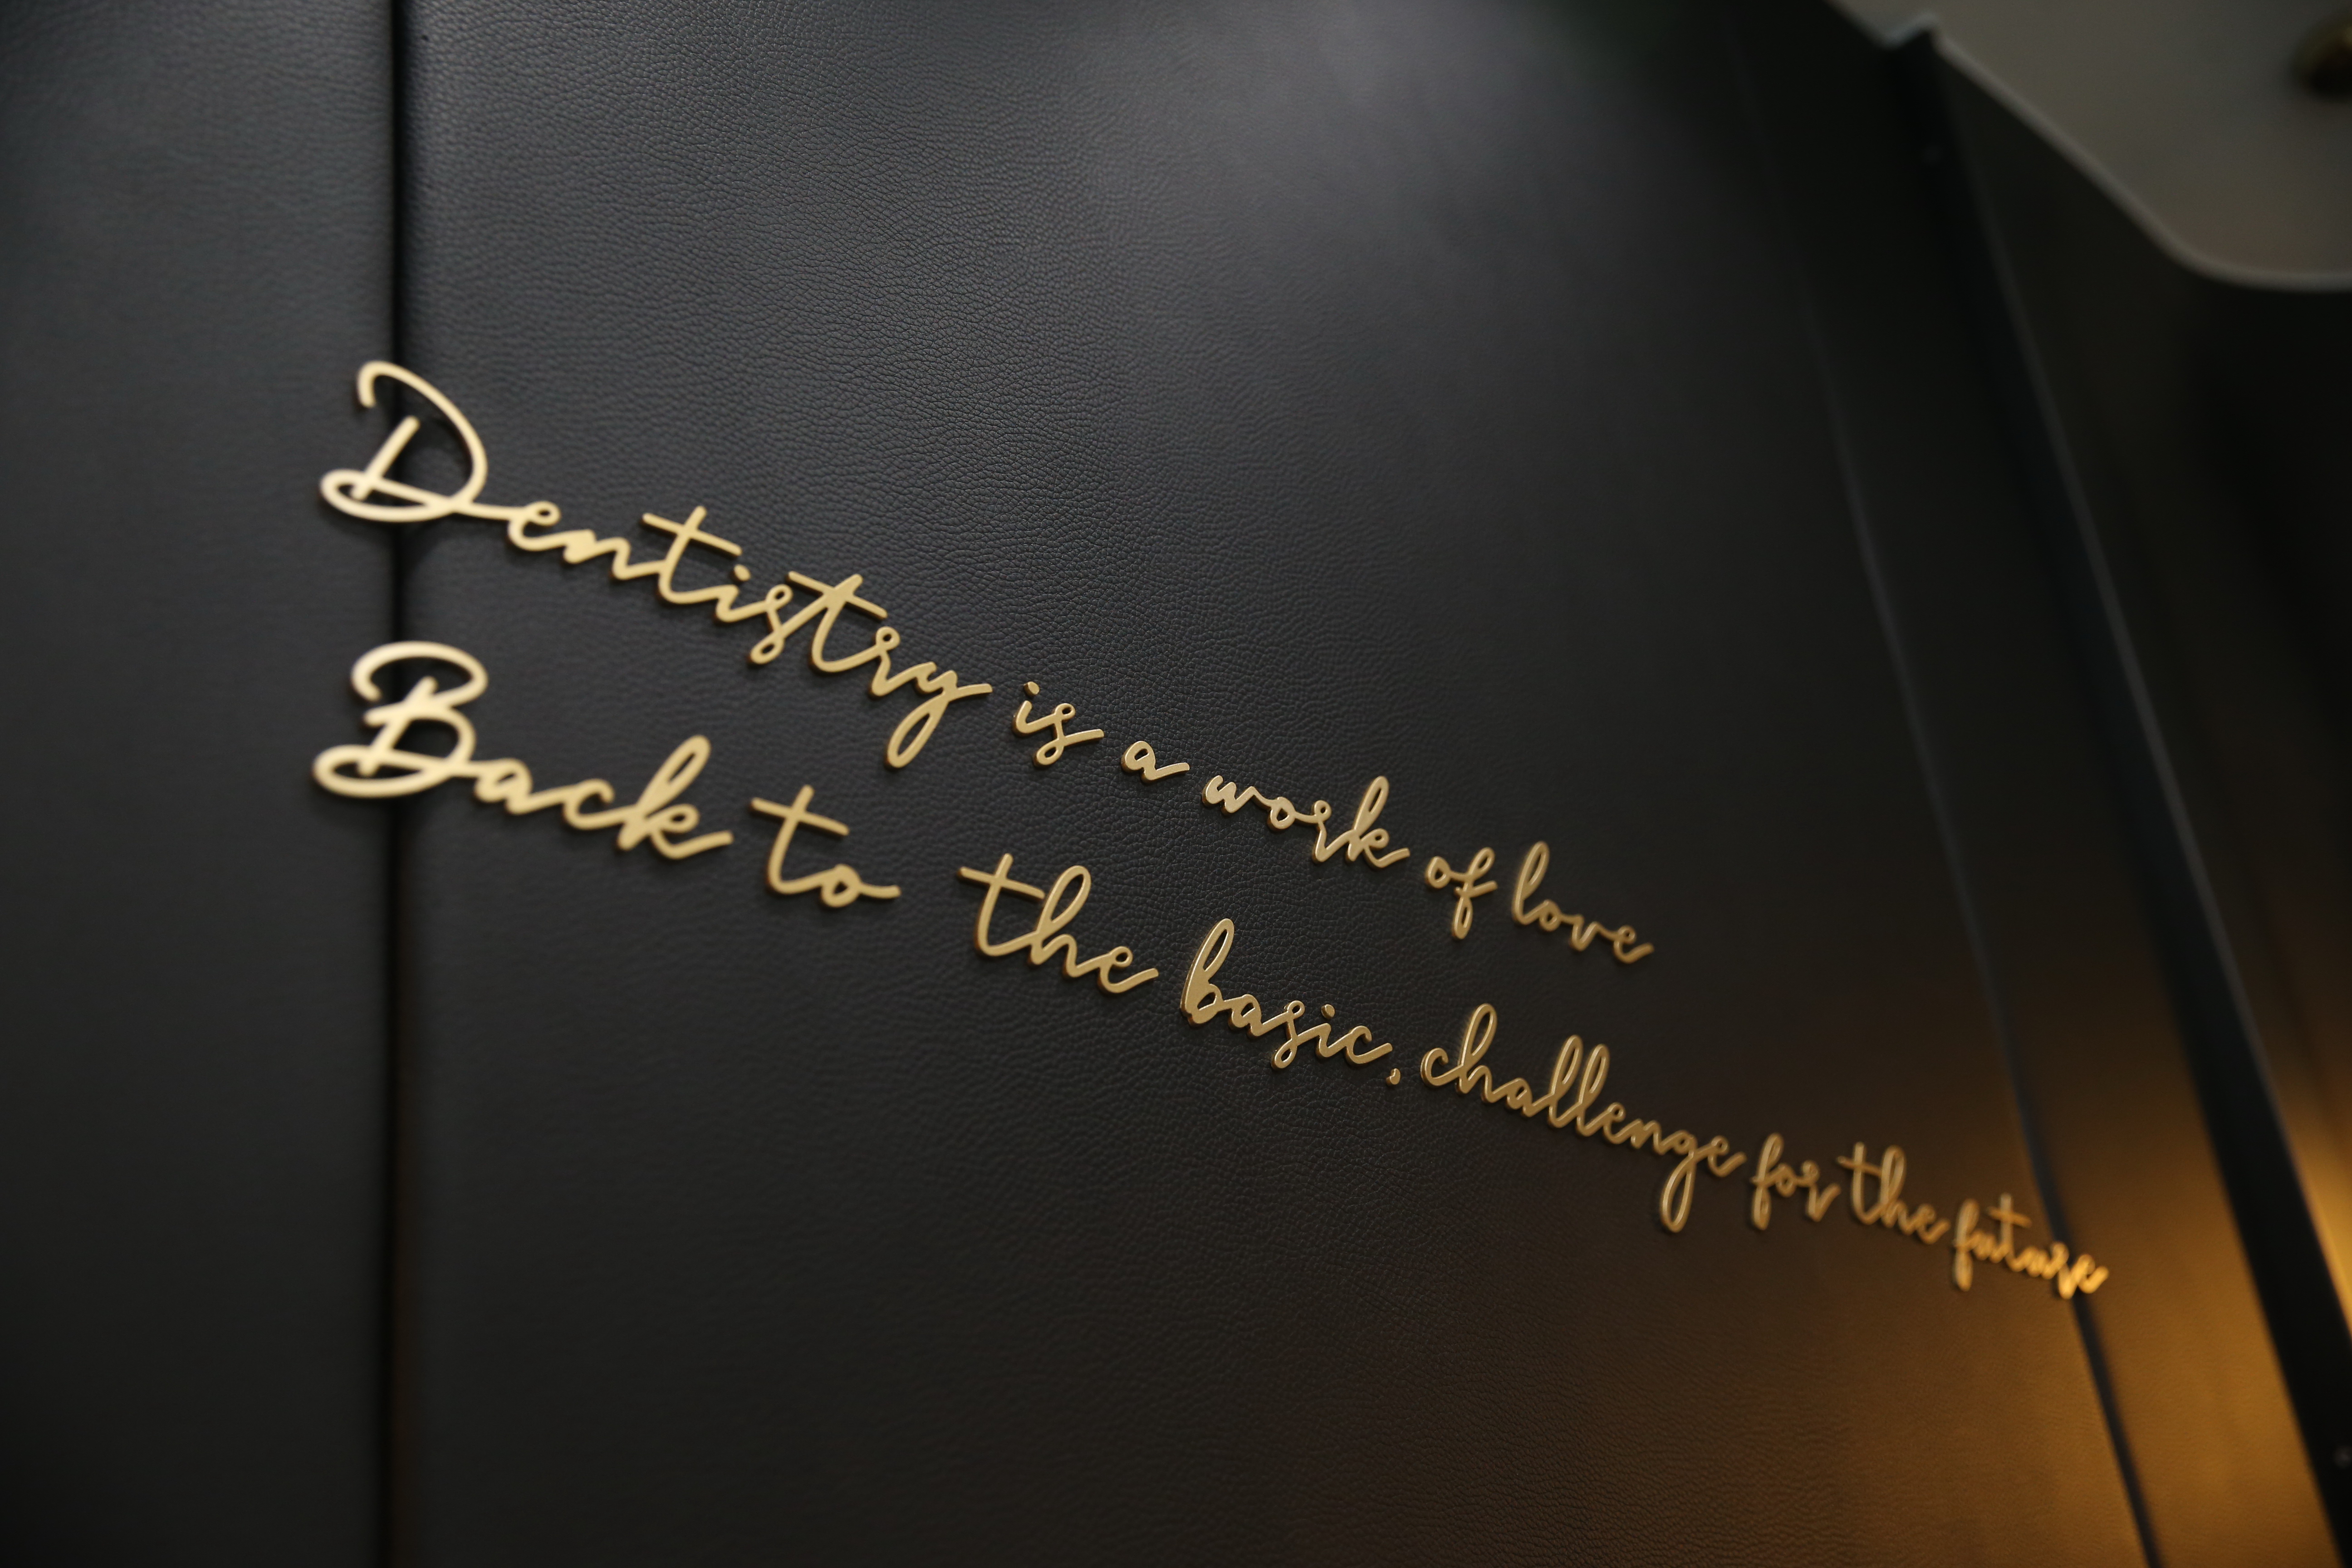 Dentistry is a work of love
Back to the basic, challenge for the future